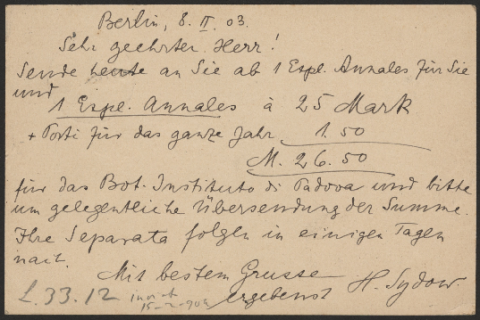 Berlin, 8. II. 03.
Sehr geehrter Herr!
Sende heute an Sie ab 1 Expl. Annales für Sie
und
1 Expl. Annales à 25 Mark
+ Porti für das ganze Jahr 1.50
M. 26.50
für das Bot. Instituto di Padova und bitte
um gelegentliche Übersendung der Summe.
Ihre Separata folgen in einigen Tagen
nach.
Mit bestem Grusse
ergebenst H. Sydow.
L. 33.12
15-2-903